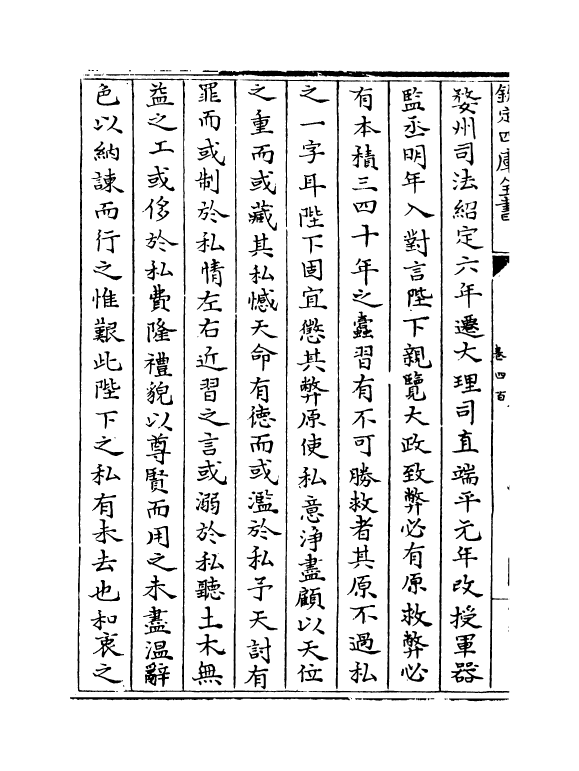 欽定四庫全書
卷四百
婺州司法紹定六年遷大理司直端平元年改授軍器
監丞明年入對言陛下親覽大政致弊必有原救弊必
有本積三四十年之蠧習有不可勝救者其原不過私
之一字耳陛下固宜懲其弊原使私意浄盡顧以天位
之重而或藏其私憾天命有徳而或濫於私予天討有
罪而或制於私情左右近習之言或溺於私聽土木無
益之工或侈於私費隆禮貌以尊賢而用之未盡温辭
色以納諫而行之惟艱此陛下之私有未去也和衷之